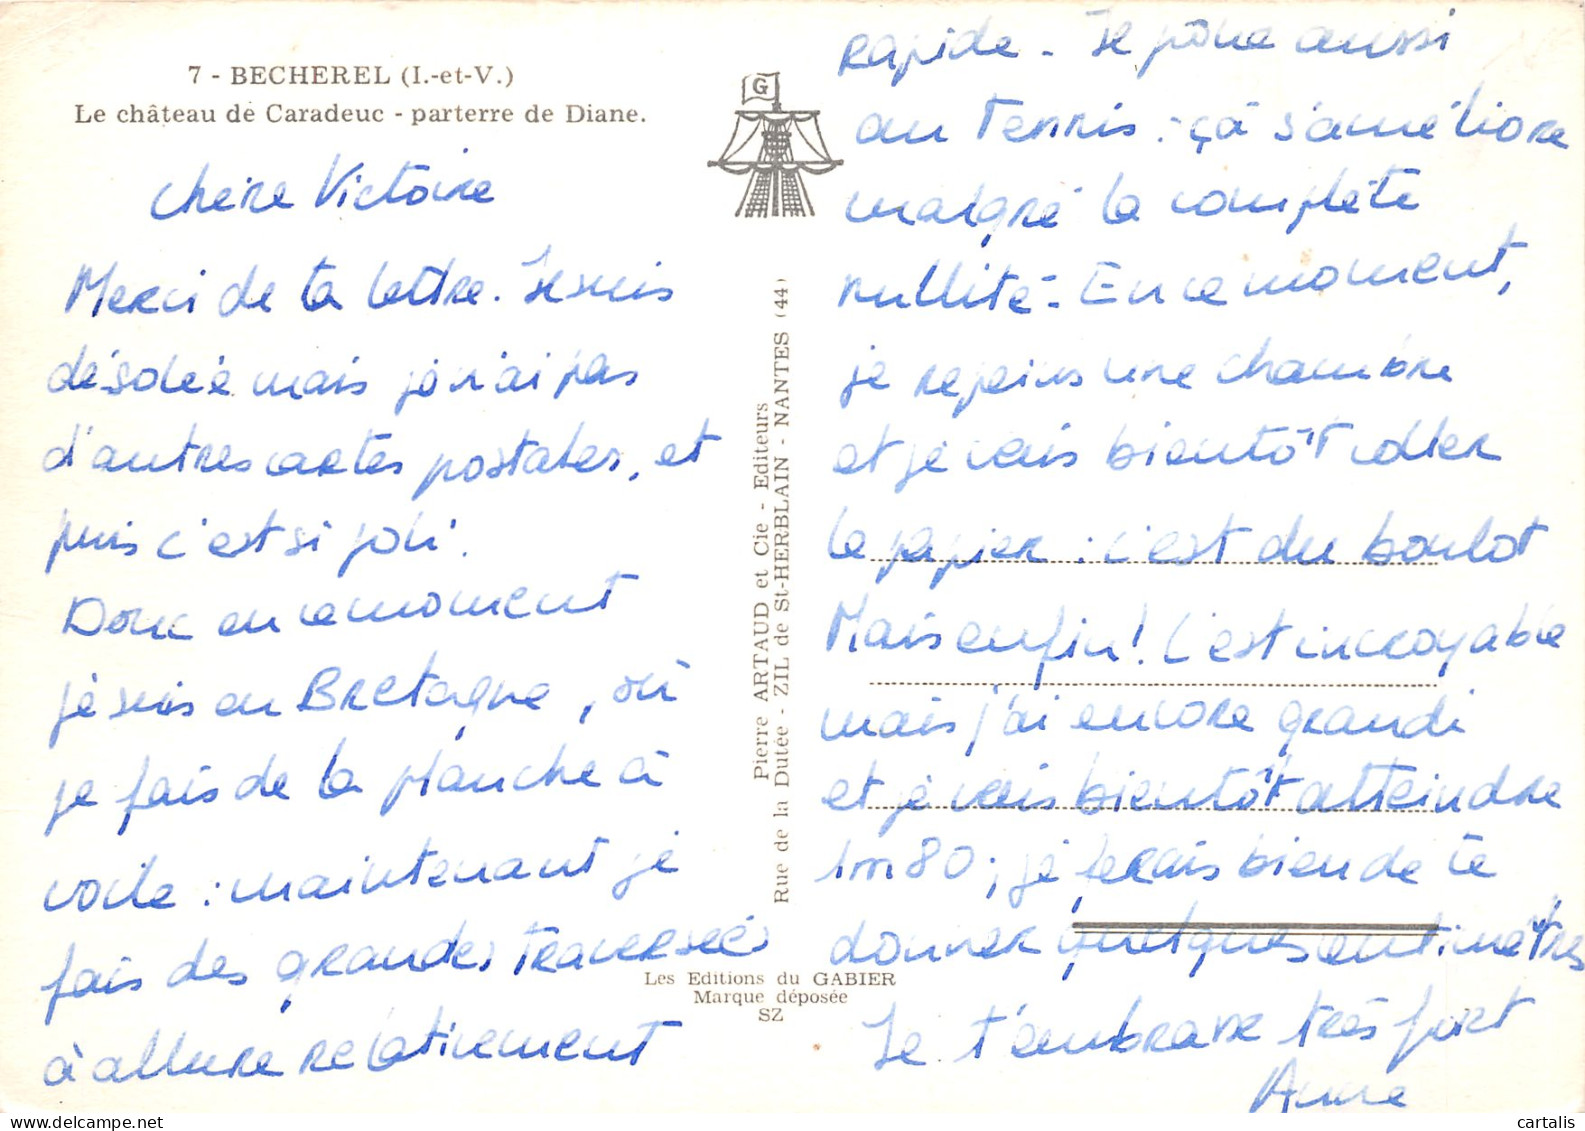 7 - BECHEREL (I.-et-V.)
Le château de Caradeuc - parterre de Diane.
G
chère Victoire
Merci de ta lettre. Je suis
désolée mais je n'ai pas
d'autres cartes postales, et
puis c'est si joli.
Donc en ce moment
je suis en Bretagne, où
je fais de la planche à
voile : maintenant je
fais des grandes traversées
à allure relativement
Pierre ARTAUD et Cie - Editeurs
Rue de la Dutée - ZIL de St-HERBLAIN - NANTES (44)
Les Editions du GABIER
Marque déposée
SZ
rapide - Je joue aussi
au Tennis : çà s'améliore
malgré la complète
nullité - En ce moment,
je repeins une chambre
et je vais bientôt coller
le papier : c'est du boulot
Mais enfin ! C'est incroyable
mais j'ai encore grandi
et je vais bientôt atteindre
1m80 ; je ferais bien de te
donner quelques centimètres
Je t'embrasse très fort
Anne
cartalis